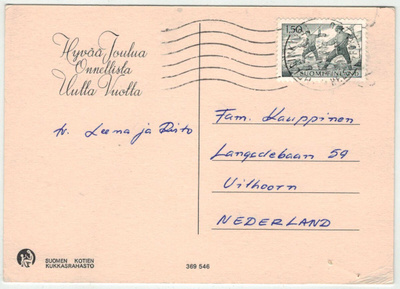 Hyvää Joulua
Onnellista
Uutta Vuotta
1,50
SUOMI-FINLAND
tv. Leena ja Risto
Fam. Kauppinen
Langedebaan 59
Uithoorn
NEDERLAND
SUOMEN KOTIEN
KUKKASRAHASTO
369 546